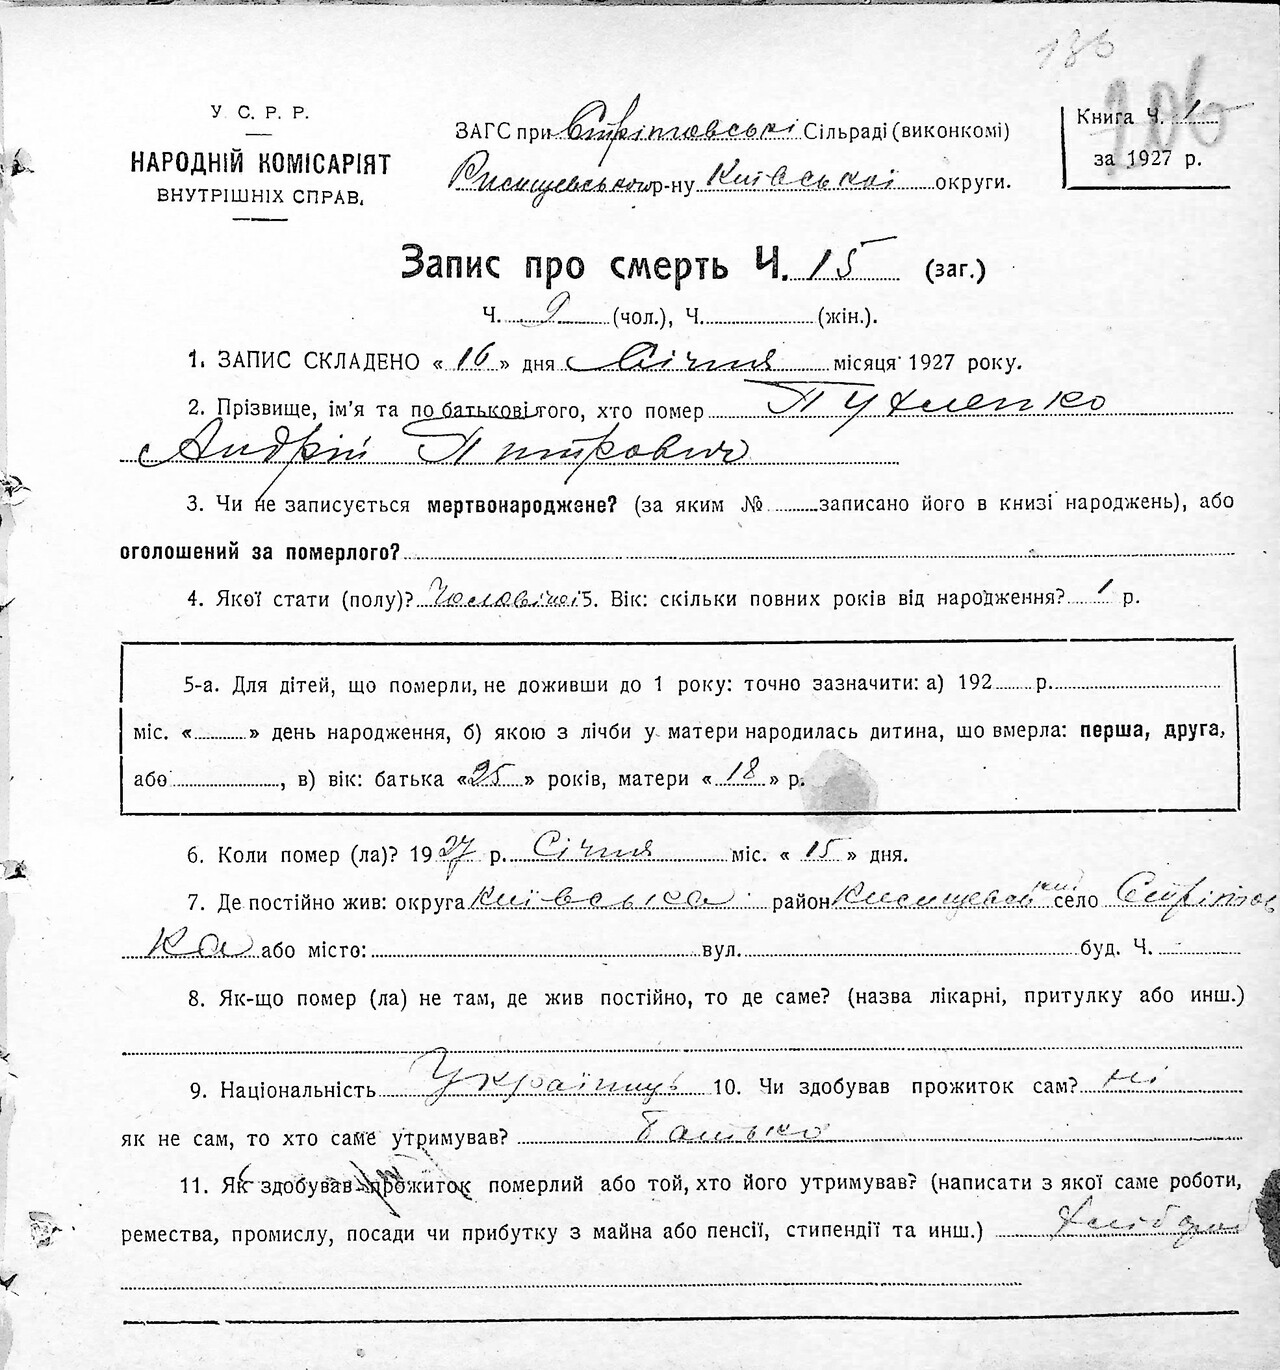 136
106
У. С. Р. Р.
НАРОДНІЙ КОМІСАРІЯТ
ВНУТРІШНІХ СПРАВ.
ЗАГС при Стрітовські Сільраді (виконкомі)
р-ну Київської округи.
Книга Ч. 1
за 1927 р.
Запис про смерть Ч. 15 (заг.)
Ч. 9 (чол.), Ч. (жін.).
1. ЗАПИС СКЛАДЕНО « 16 » дня Січня місяця 1927 року.
2. Прізвище, ім'я та по батькові того, хто помер
Андрій Питрович
3. Чи не записується мертвонароджене? (за яким № записано його в книзі народжень), або
оголошений за померлого?
4. Якої стати (полу)? Чоловічої 5. Вік: скільки повних років від народження? 1 р.
5-а. Для дітей, що померли, не доживши до 1 року: точно зазначити: а) 192 р.
міс. « » день народження, б) якою з лічби у матери народилась дитина, що вмерла: перша, друга,
або , в) вік: батька « 25 » років, матери « 18 » р.
6. Коли помер (ла)? 1927 р. Січня міс. « 15 » дня.
7. Де постійно жив: округа Київська район село Стрітов
ка або місто: вул. буд. Ч.
8. Як-що помер (ла) не там, де жив постійно, то де саме? (назва лікарні, притулку або инш.)
9. Національність Українець 10. Чи здобував прожиток сам? ні
як не сам, то хто саме утримував? Батько
11. Як здобував прожиток померлий або той, хто його утримував? (написати з якої саме роботи,
ремества, промислу, посади чи прибутку з майна або пенсії, стипендії та инш.) Хлібороб